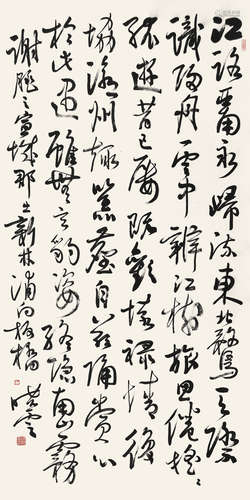 江路西南永歸流東北騖天際
識歸舟雲中辨江樹旅思倦搖搖
孤遊昔已屢既歡懷祿情復
協滄州趣囂塵自茲隔賞心
於此遇雖無玄豹姿終隱南山霧
謝朓之宣城郡出新林浦向板橋